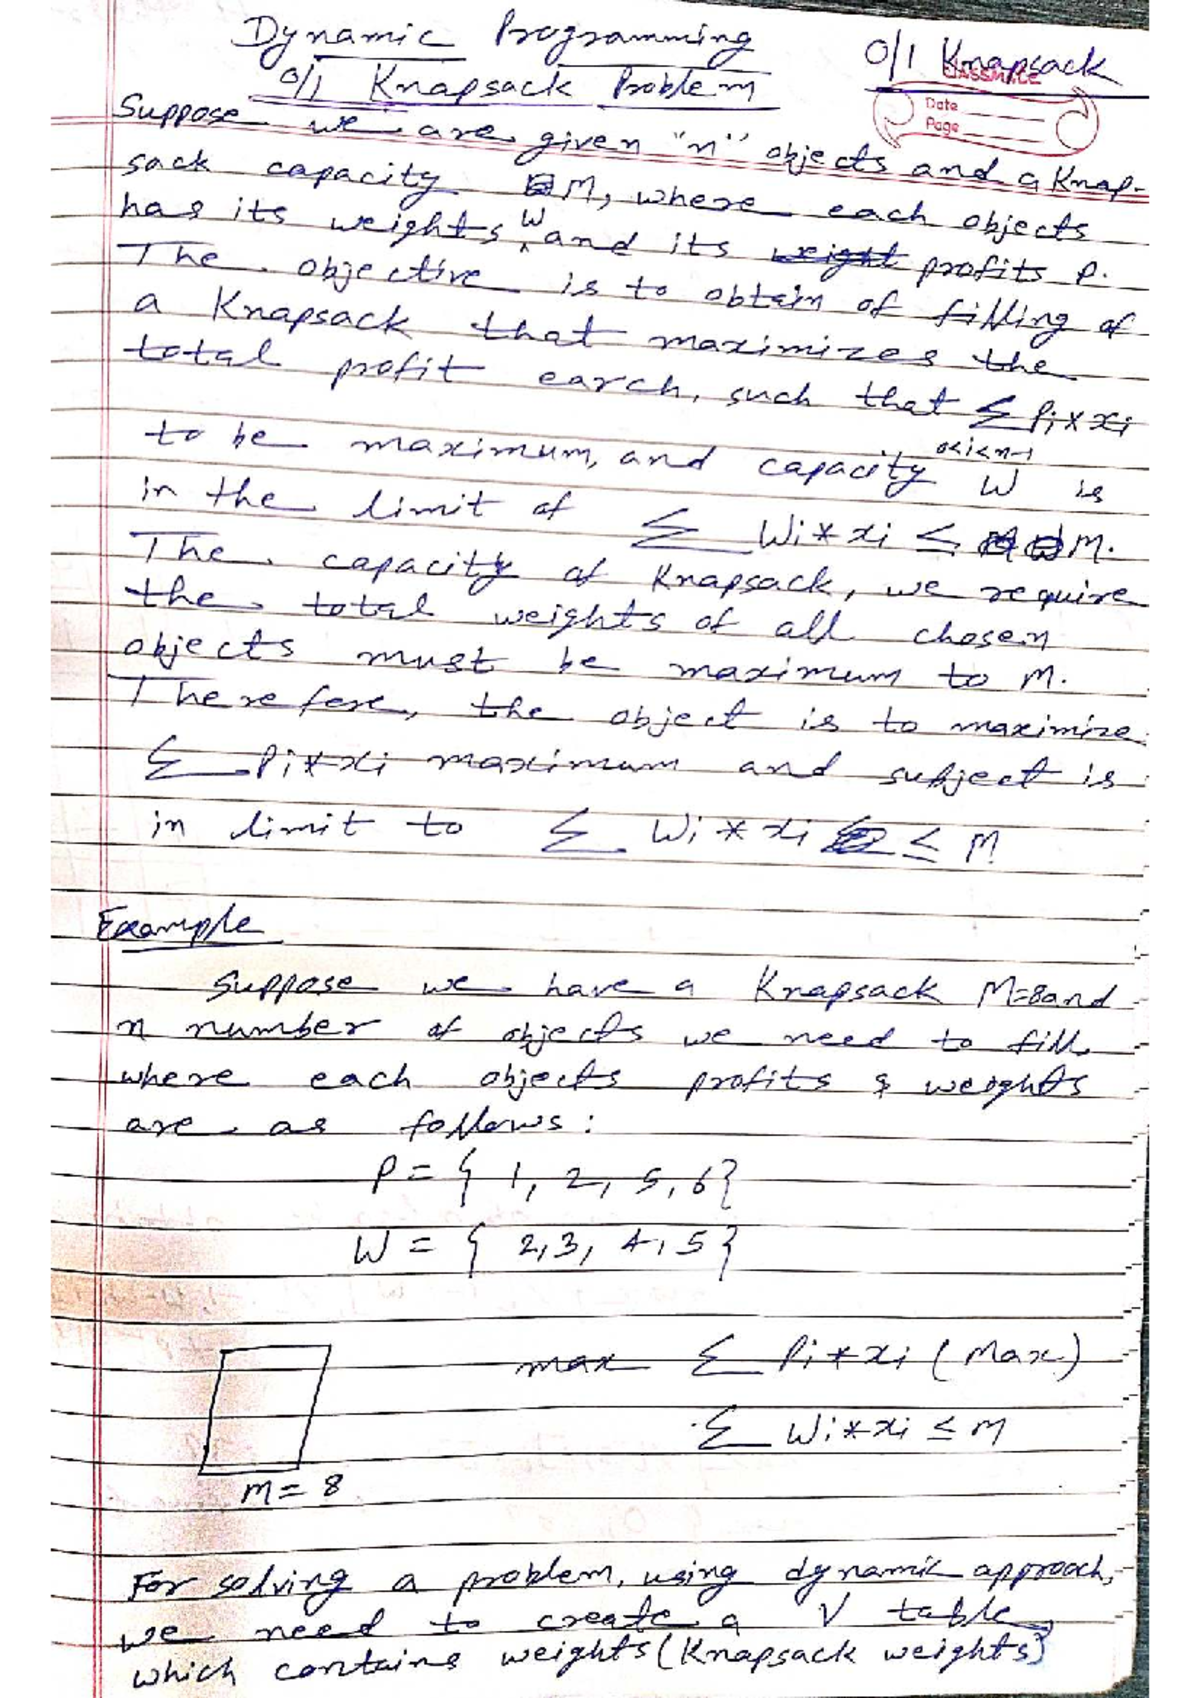 Dynamic Programming
0/1 Knapsack
0/1 Knapsack Problem
classmate
Date
Page
Suppose we are given "n" objects and a Knap-
sack capacity M, where each objects
has its weights W and its weight profits P.
The objective is to obtain of filling of
a Knapsack that maximizes the
total profit earch, such that Σ Pi * xi
0<i<n-1
to be maximum, and capacity W is
in the limit of Σ Wi * xi ≤ M.
The capacity of Knapsack, we require
the total weights of all chosen
objects must be maximum to M.
Therefore, the object is to maximize
Σ Pi * xi maximum and subject is
in limit to Σ Wi * xi ≤ M
Example
Suppose we have a Knapsack M=8 and
n number of objects we need to fill
where each objects profits & weights
are as follows:
P = { 1, 2, 5, 6}
W = { 2, 3, 4, 5}
max Σ Pi * xi (Max)
Σ Wi * xi ≤ M
M = 8
For solving a problem, using dynamic approach,
we need to create a V table,
which contains weights (Knapsack weights)